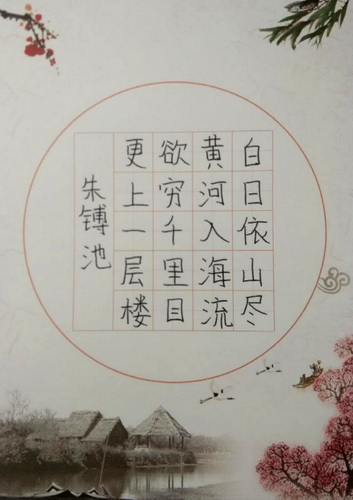 白日依山尽
黄河入海流
欲穷千里目
更上一层楼
朱镈池